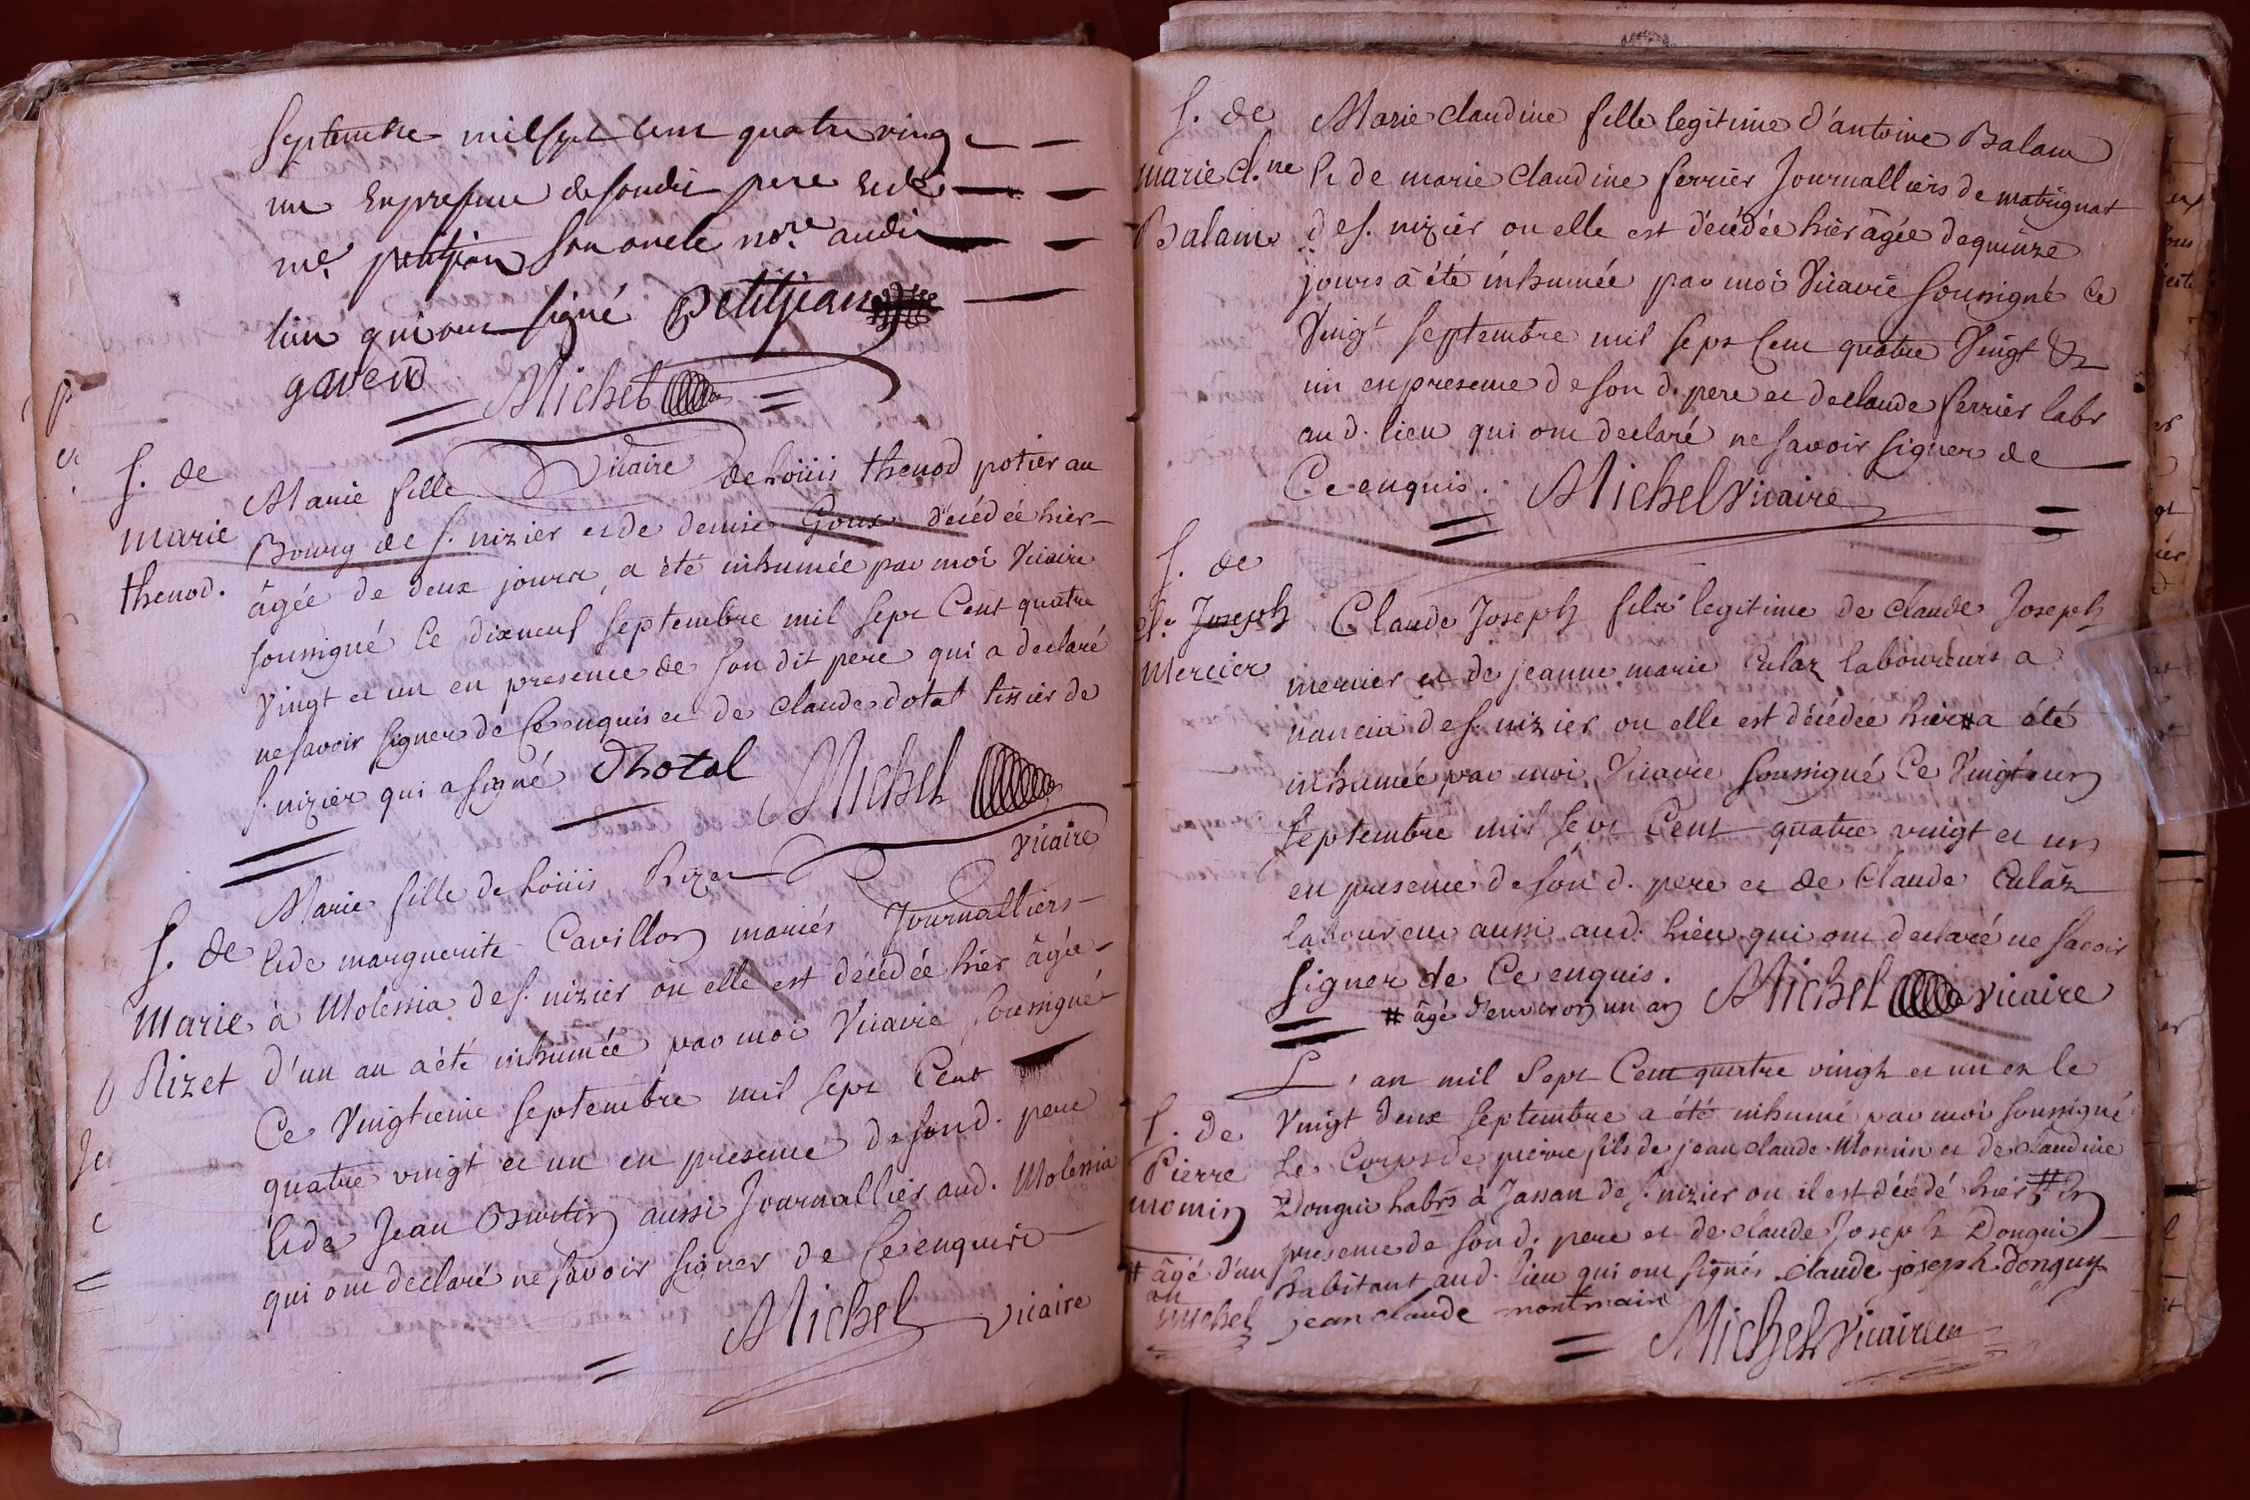 septembre mil sept cent quatre ving
un en presence de son dit pere et de
me. petitjean son oncle no.re audit
lieu qui ont signé Petitjean
gavend Michel
Vicaire
S. de
marie
thenod.
Marie fille de Loüis thenod potier au
Bourg de S. nizier et de denise Goux décédée hier
âgée de deux jours, a été inhumée par moi Vicaire
soussigné Ce dixneuf septembre mil sept Cent quatre
Vingt et un en presence de son dit pere qui a declaré
ne savoir signer de Ce enquis et de Claude dotal tissier de
S. nizier qui a signé Dhotal Michel
Vicaire
S. de
Marie
Rizet
Marie fille de Loüis Rizet
et de marguerite Cavillon mariés Journalliers
à Molessia de S. nizier ou elle est décédée hier âgée
d'un an a été inhumée par moi Vicaire soussigné
Ce Vingtieme septembre mil sept Cent
quatre vingt et un en presence de son d. pere
et de Jean Burtin aussi Journallier aud. Molessia
qui ont declaré ne savoir signer de Ce enquis
Michel vicaire
S. de
marie Cl.ne
Balam
Marie Claudine fille legitime d'antoine Balam
et de marie Claudine ferrier Journalliers de matrignat
de S. nizier ou elle est décédée hier âgée de quinze
jours a été inhumée par moi Vicaire soussigné Ce
Vingt septembre mil sept Cent quatre Vingt et
un en presence de son d. pere et de Claude ferrier labr
aud. lieu qui ont declaré ne savoir signer de
Ce enquis. Michel Vicaire
S. de
Cl. Joseph
Mercier
Claude Joseph fils legitime de Claude Joseph
mercier et de jeanne marie Culaz laboureurs a
nancia de S. nizier ou elle est décédée hier # a été
inhumée par moi Vicaire soussigné Ce Vingt et un
septembre mil sept Cent quatre vingt et un
en presence de son d. pere et de Claude Culaz
laboureur aussi aud. lieu qui ont declaré ne savoir
signer de Ce enquis.
# âgé d'environ un an Michel vicaire
S. de
Pierre
momin
# âgé d'un
an
Michel
L'an mil sept Cent quatre vingt et un et le
Vingt deux septembre a été inhumé par moi soussigné
Le Corps de pierre fils de jean claude Momin et de Claudine
Dongui habts à Jassan de S. nizier ou il est décédé hier # En
presence de son d. pere et de claude Joseph Dongui
habitant aud. lieu qui ont signés claude joseph Donguy
jean claude montmain
Michel Vicaire